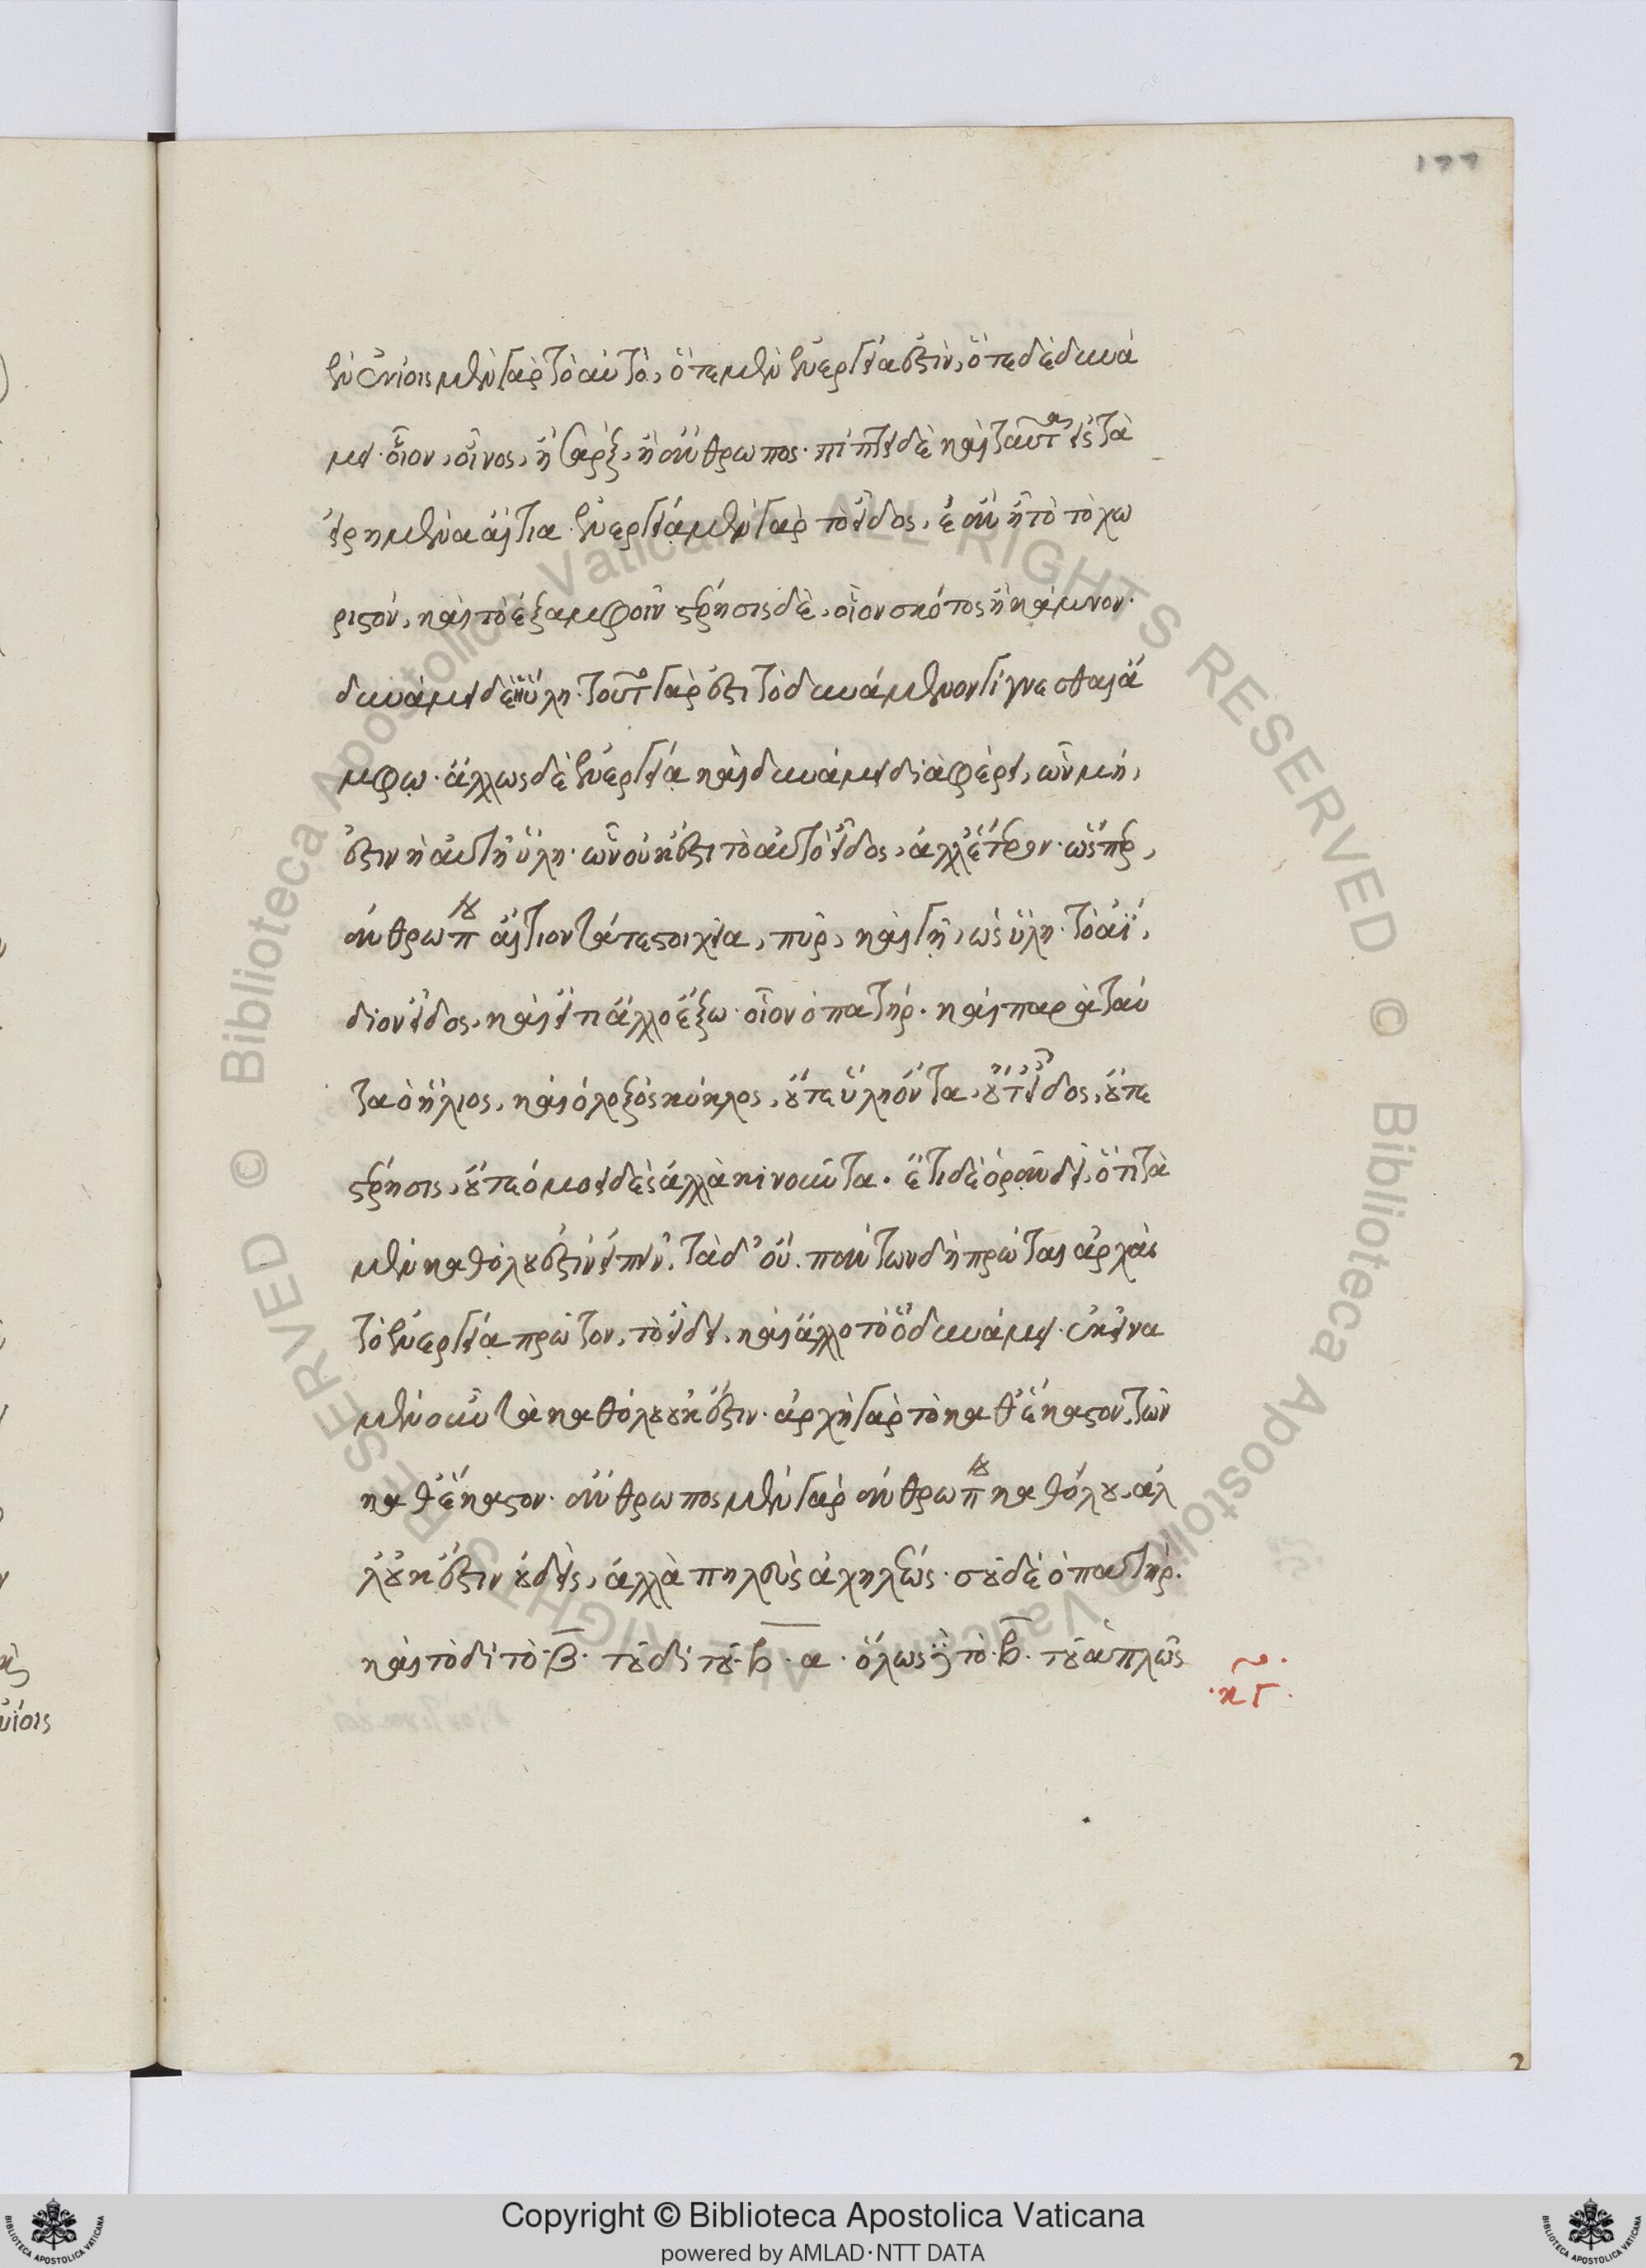 ἐν ἐνίοις μὲν γὰρ τὸ αὐτὸ, ὁτὲ μὲν ἐνεργεία ἐστὶν, ὁτὲ δὲ δυνά
μει· οἷον, οἶνος, ἢ σάρξ, ἢ ἄνθρωπος· πίπτει δὲ καὶ ταῦτα εἰς τὰ
εἰρημένα αἴτια· ἐνεργεία μὲν γὰρ τὸ εἶδος, ἐὰν ἦ τὸ τὸ χω
ριστόν, καὶ τὸ ἐξ ἀμφοῖν· στέρησις δὲ, οἷον σκότος ἢ κάμνον·
δυνάμει δὲ ἡ ὕλη· τοῦτο γάρ ἐστι τὸ δυνάμενον γίγνεσθαι ἄ
μφω· ἄλλως δὲ ἐνεργεία καὶ δυνάμει διαφέρει, ὧν μή,
ἐστιν ἡ αὐτὴ ὕλη· ὧν οὐκ ἔστι τὸ αὐτὸ εἶδος, ἀλλ' ἕτερον· ὥσπερ,
ἀνθρώπου αἴτιον τά τε στοιχεῖα, πῦρ, καὶ γῆ, ὡς ὕλη· τὸ αἴ,
διον εἶδος, καὶ εἴ τι ἄλλο ἔξω· οἷον ὁ πατήρ· καὶ παρὰ ταῦ
τα ὁ ἥλιος, καὶ ὁ λοξὸς κύκλος, οὔτε ὕλη ὄντα, οὔτ' εἶδος, οὔτε
στέρησις, οὔτε ὁμοειδὲς ἀλλὰ κινοῦντα· ἔτι δὲ ὁρᾶν δεῖ, ὅτι τὰ
μὲν καθόλου ἐστὶν εἰπεῖν· τὰ δ' οὔ· πάντων δὴ πρῶται ἀρχαὶ
τὸ ἐνεργεία πρῶτον, τὸ εἴδει, καὶ ἄλλο τὸ ὃ δυνάμει· ἐκεῖνα
μὲν οὖν τὰ καθόλου οὐκ ἔστιν· ἀρχὴ γὰρ τὸ καθ' ἕκαστον, τῶν
καθ' ἕκαστον· ἄνθρωπος μὲν γὰρ ἀνθρώπου καθόλου, ἀλ
λ' οὐκ ἔστιν οὐδεὶς, ἀλλὰ πηλεὺς ἀχιλλέως· σοῦ δὲ ὁ πατήρ·
καὶ τὸ δὶ τὸ· β· τοῦ δὶ τοῦ· β· α· ὅλως δὲ τὸ· β· τοῦ ἁπλῶς
κγ